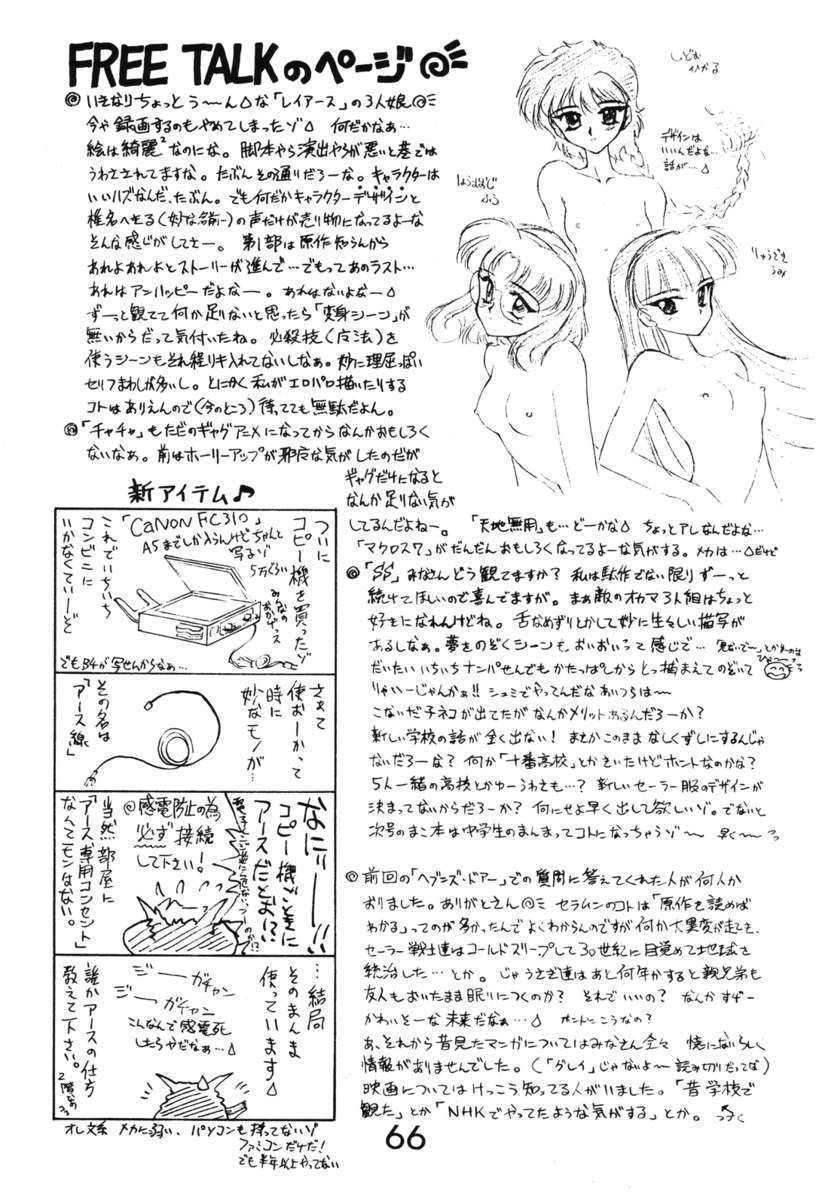 FREE TALKのページ
◎ いきなりちょっとう〜〜ん△な「レイアース」の3人娘
今や録画するのもやめてしまったゾ△ 何だかなぁ…
絵は綺麗²なのにな。脚本やら演出やらが悪いと巷では
うわさされてますな。たぶんその通りだろーな。キャラクターは
いいハズなんだ、たぶん。でも何だかキャラクターデザインと
椎名へきる(妙な名前ー)の声だけが売り物になってるよーな
そんな感じがしてさー。 第1部は原作知らんから
あれよあれよとストーリーが進んで…でもってあのラスト…
あれはアンハッピーだよなー。あれはないよなー△
ずーっと観てて何か足りないと思ったら「変身シーン」が
無いからだって気付いたね。必殺技(魔法)を
使うシーンもそれ程りキ入れてないしなぁ。妙に理屈っぽい
セリフまわしが多いし。とにかく私がエロパロ描いたりする
コトはありえんので(今のところ)待ってても無駄だよん。
◎「チャチャ」もただのギャグアニメになってからなんかおもしろく
ないなぁ。前はホーリーアップが邪な気がしたのだが
ギャグだけになると
なんか足りない気が
してるんだよねー。 「天地無用」も…どーかな△ ちょっとアレなんだよな…
「マクロス7」がだんだんおもしろくなってるよーな気がする。メカは…△だけど
しどう
ひかる
デザインは
いいんだよな…
話が…△
ほうおうじ
ふう
りゅうざき
うみ
◎「SS」みなさんどう観てますか? 私は駄作でない限りずーっと
続けてほしいので喜んでますが。まぁ敵のオカマ3人組はちょっと
好きになれんけどね。舌なめずりとかして妙に生々しい描写が
あるしなぁ。夢をのぞくシーンもおいおいって感じで…
だいたいいちいちナンパせんでもかたっぱしからとっ捕まえてのぞいて
りゃいーじゃんかぁ!! シュミでやってんだなあいつらは〜
こないだ子ネコが出てたがなんかメリットあるんだろーか?
新しい学校の話が全く出ない! まさかこのままなしくずしにするんじゃ
ないだろーな? 何か「十番高校」とかきいたけどホントなのかな?
5人一緒の高校とかゆーうわさも…? 新しいセーラー服のデザインが
決まってないからだろーか? 何にせよ早く出して欲しいゾ。でないと
次号のまこ本は中学生のまんまってコトになっちゃうゾ〜 早く〜
◎ 前回の「ヘブンズ・ドアー」での質問に答えてくれた人が何人か
おりました。ありがとさん セラムンのコトは「原作を読めば
わかる」ってのが多かったんでよくわからんのですが何か大異変が起きて、
セーラー戦士達はコールドスリープして30世紀に目覚めて地球を
統治した…とか。じゃうさぎ達はあと何年かすると親兄弟も
友人もおいたまま眠りにつくのか? それでいいの? なんかすげー
かわいそーな未来だなぁ…△ ホントにこうなの?
あ、それから昔見たマンガについてはみなさん全々 懐にないらしく
情報がありませんでした。(「グレイ」じゃないよ〜読み切りだってな)
映画についてはけっこう知ってる人がいました。「昔学校で
観た」とか「NHKでやってたような気がする」とか。
新アイテム♪
ついに
コピー機を買ったゾ
「CANON FC310」
A5までしか入らんけどちゃんと
写るゾ
5万ぐらい
みんなの
おかげっス
これでいちいち
コンビニに
いかなくていーゾ
でもB4が写せんからなぁ…
さぁて
使おーかって
時に
妙なモノが…
その名は
「アース線」
なにィーー!!
コピー機ごときに
アースだとぉ!?
@感電防止の為
必ず接続
して下さい!
当然部屋に
「アース専用コンセント」
なんてモンはない。
…結局
そのまんま
使っています△
ジーー ガチャン
ジーー ガチャン
こんなんで感電死
したらやだなぁ…△
誰かアースの仕方
教えて下さい。
オレ文系 メカに弱い、パソコンも持ってないゾ
ファミコンだけだ!
でも半年以上やってない
66